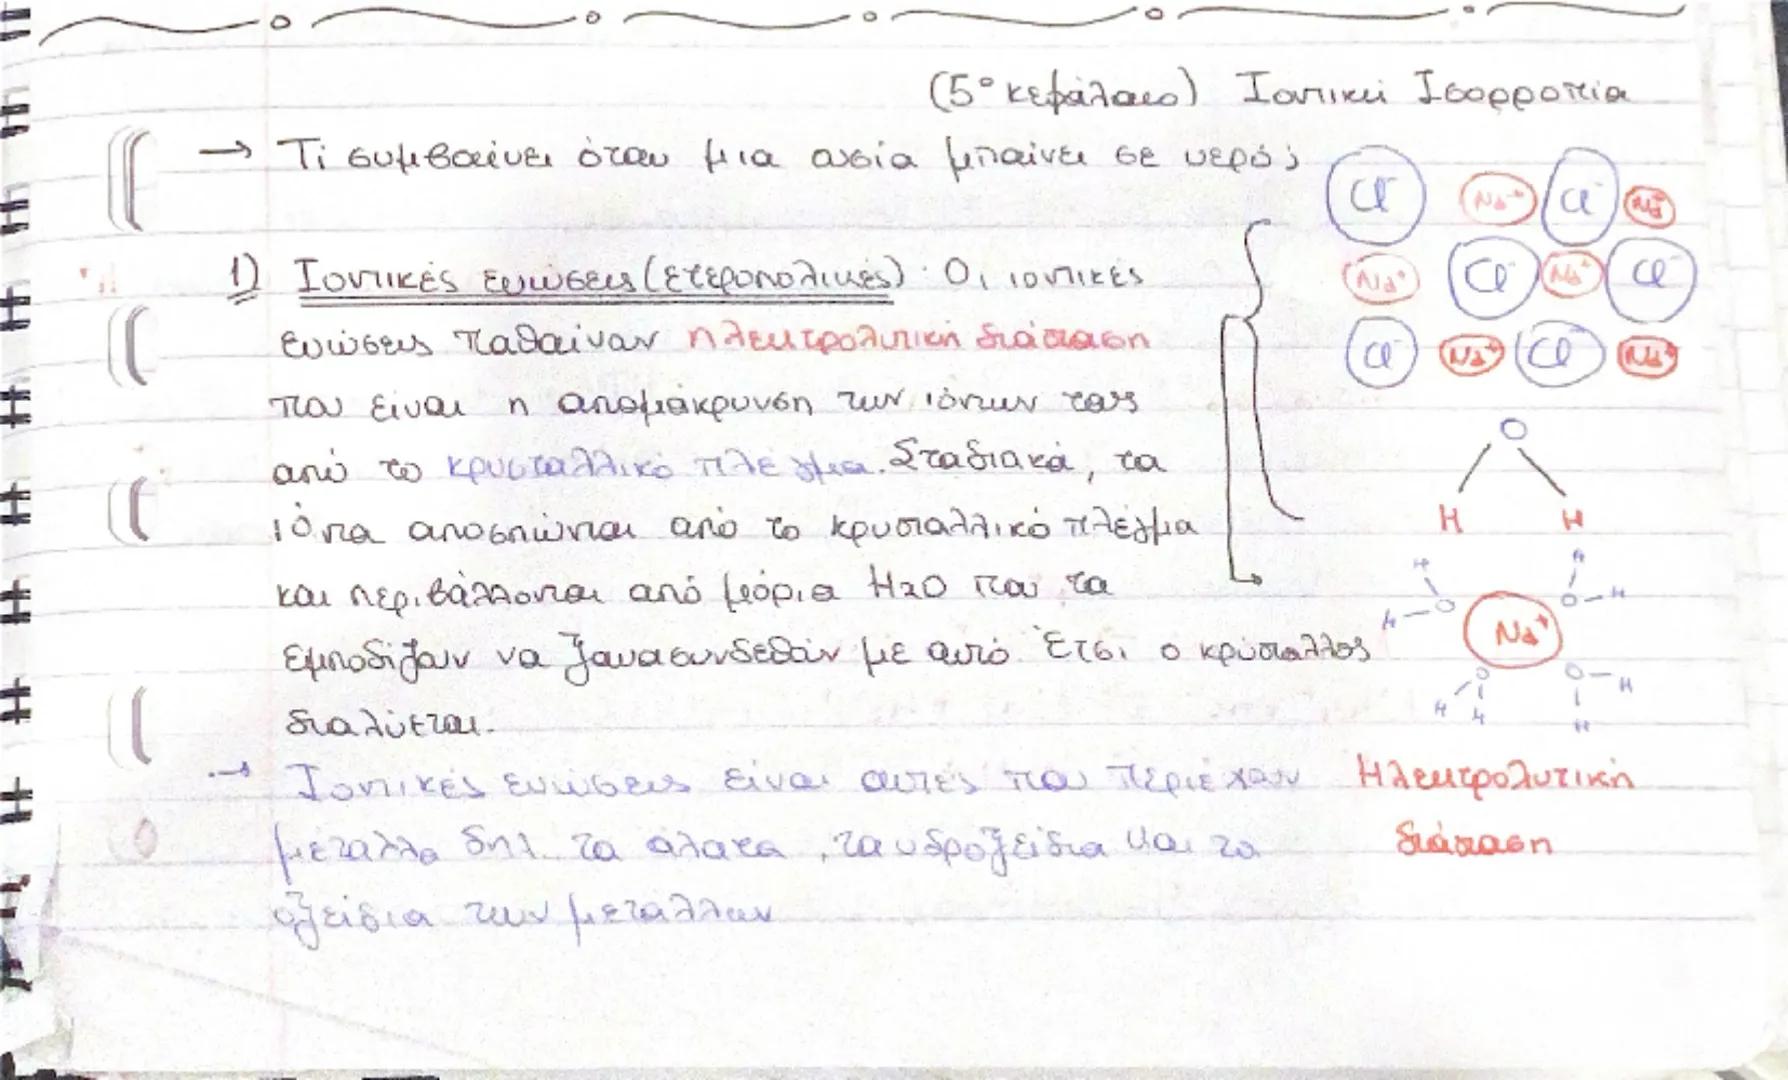 (5° κεφάλαιο) Ιοντική Ισορροπία
→ Τί συμβαίνει όταν μια ουσία μπαίνει σε νερό;
1) Ιοντικές ενώσεις (ετεροπολικές): Οι ιοντικές
ενώσεις παθαίνουν ηλεκτρολυτική διάσταση
που είναι η απομάκρυνση των ιόντων τους
από το κρυσταλλικό πλέγμα. Σταδιακά, τα
ιόντα αποσπώνται από το κρυσταλλικό πλέγμα
και περιβάλλονται από μόρια H2O που τα
εμποδίζουν να ξανασυνδεθούν με αυτό. Έτσι ο κρύσταλλος
διαλύεται.
→ Ιοντικές ενώσεις είναι αυτές που περιέχουν
μέταλλο δηλ. τα άλατα, τα υδροξείδια και τα
οξείδια των μετάλλων
Cl⁻ Na⁺ Cl⁻ Na⁺
Na⁺ Cl⁻ Na⁺ Cl⁻
Cl⁻ Na⁺ Cl⁻ Na⁺
O
H H
H H
H O O H
Na⁺
O O H
H H H
Ηλεκτρολυτική
διάσταση